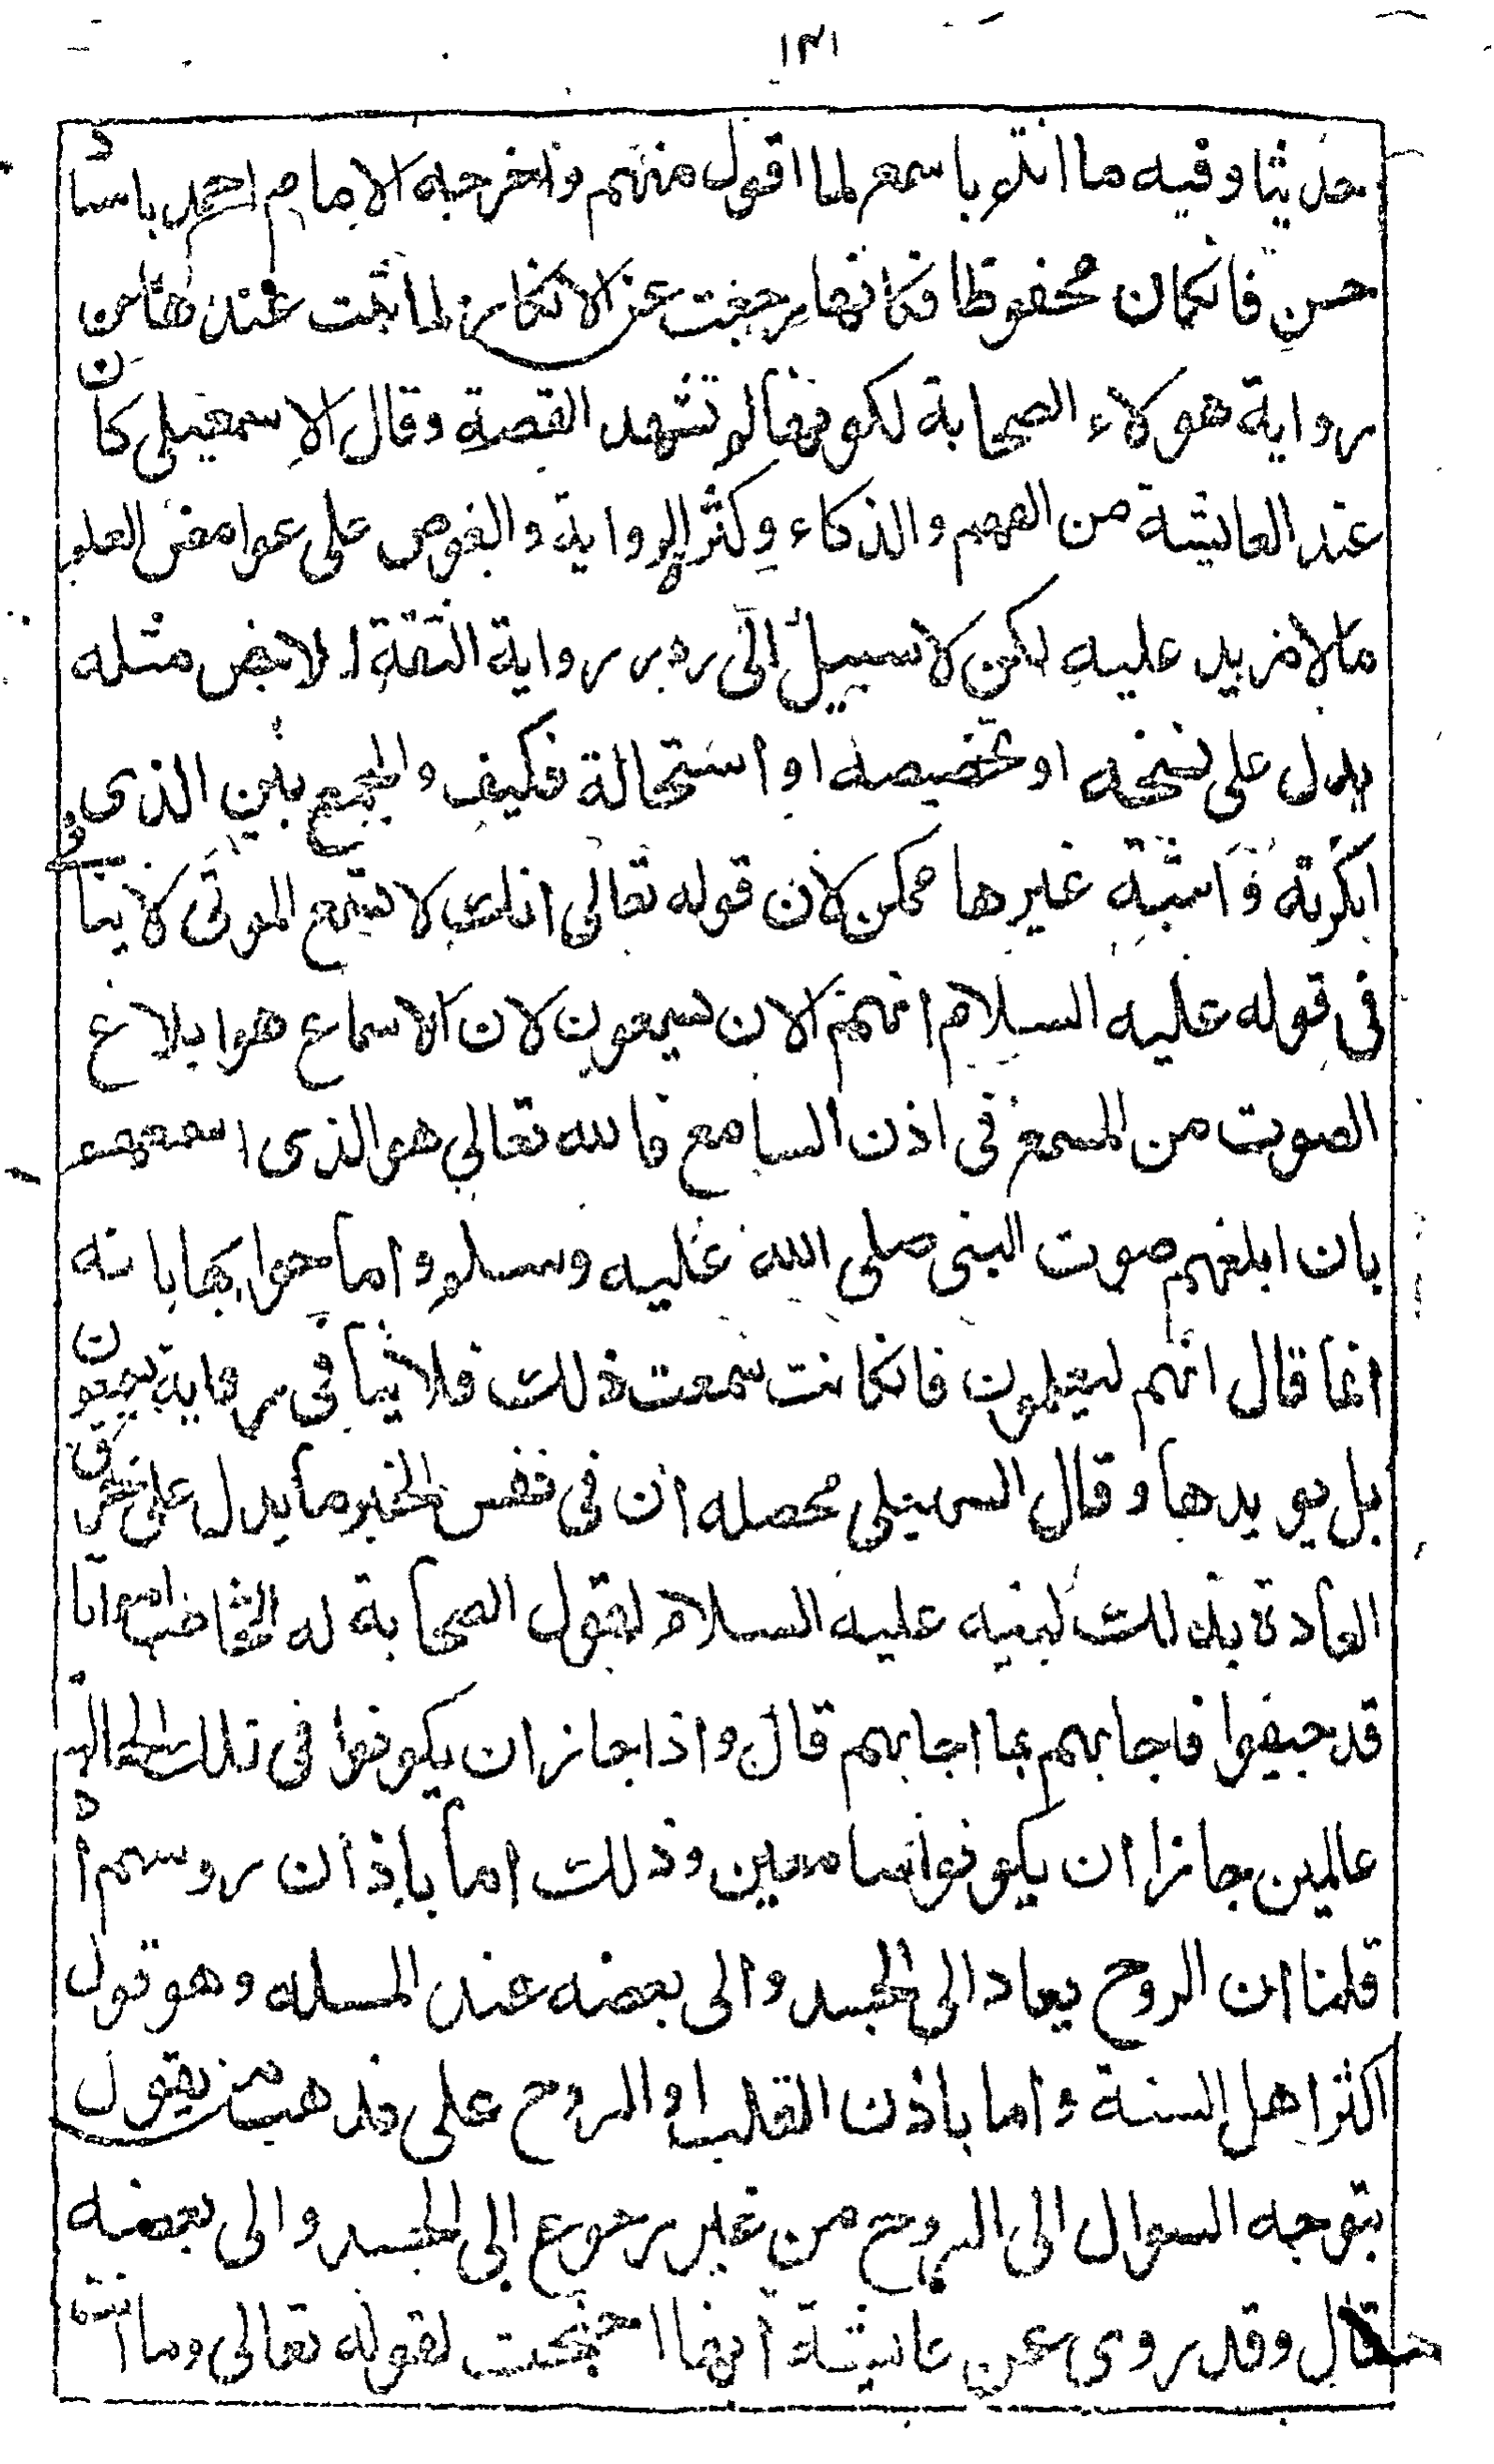 ١٣١
حديثا وفيه ما انتم باسمع لما اقول منهم واخرجه الامام احمد باسناد
حسن فانكان محفوظا فكانها رجعت عن الانكار لما ثبت عندها من
رواية هولاء الصحابة لكونها لم تشهد القصة وقال الاسمعيلى كان
عند العايشة من الفهم والذكاء وكثرة الرواية والغوص على عوامض العلوم
مالا مزيد عليه لكن لا سبيل الى رد رواية الثقة الا بنص مثله
يدل على نسخه او تخصيصه او استحالة فكيف والجمع بين الذى
انكرته واثبته غيرها ممكن لان قوله تعالى انك لا تسمع الموتى لا ينافى
فى قوله عليه السلام انهم الان يسمعون لان الاسماع هو ابلاغ
الصوت من المسمع فى اذن السامع فالله تعالى هو الذى اسمعهم
بان ابلغهم صوت النبى صلى الله عليه وسلم واما جوابها بانه
انما قال انهم ليعلمون فانكانت سمعت ذلك فلا ينافى رواية يسمعون
بل يويدها وقال السهيلى محصله ان فى نفس الخبر ما يدل على خرق
العادة بذلك لنبيه عليه السلام لقول الصحابة له اتخاطب امواتا
قد جيفوا فاجابهم بما اجابهم قال واذا جاز ان يكونوا فى تلك الحالة
عالمين جاز ان يكونوا سامعين وذلك اما باذان روسهم اذا
قلنا ان الروح يعاد الى الجسد والى بعضه عند المسله وهو قول
اكثر اهل السنة واما باذن القلب او الروح على مذهب من يقول
بتوجه السوال الى الروح من غير رجوع الى الجسد والى بعضه
قال وقد روى عن عايشة انها احتجت لقوله تعالى وما انت